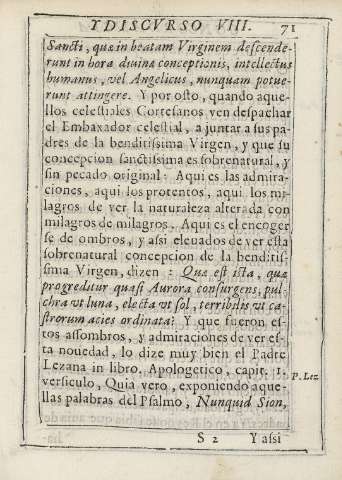 Y DISCVRSO VIII. 71
Sancti, quæ in beatam Virginem descende-
runt in hora diuinæ conceptionis, intellectus
humanus, vel Angelicus, nunquam potue-
runt attingere. Y por osto, quando aque-
llos celestiales Cortesanos ven despachar
el Embaxador celestial, a juntar a sus pa-
dres de la benditissima Virgen, y que su
concepcion sanctissima es sobrenatural, y
sin pecado original: Aqui es las admira-
ciones, aqui los protentos, aqui los mi-
lagros de ver la naturaleza alterada con
milagros de milagros, Aqui es el encoger
se de ombros, y assi eleuados de ver esta
sobrenatural concepcion de la benditis-
sima Virgen, dizen: Quæ est ista, quæ
progreditur quasi Aurora consurgens, pul-
chra vt luna, electa vt sol, terribilis vt ca-
strorum acies ordinata? Y que fueron es-
tos assombros, y admiraciones de ver es-
ta nouedad, lo dize muy bien el Padre
Lezana in libro, Apologetico, capit. 1.
versiculo, Quia vero, exponiendo aque-
llas palabras del Psalmo, Nunquid Sion,
P. Lez
S 2 Y assi